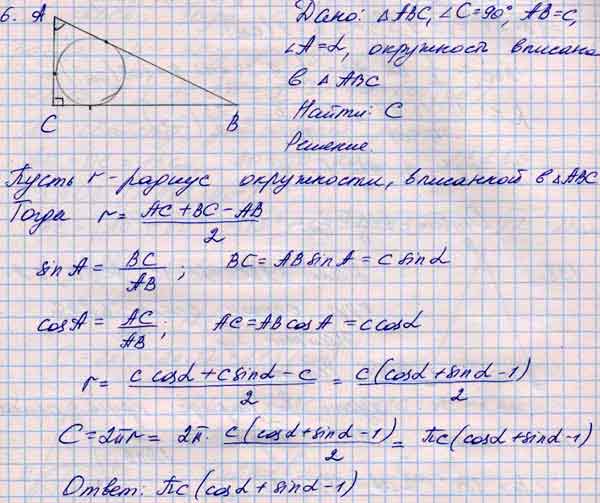 6. A
C
B
Дано: △ABC, ∠C=90°, AB=c,
∠A=α, окружность вписана
в △ABC
Найти: C
Решение.
Пусть r - радиус окружности, вписанной в △ABC
Тогда r = (AC + BC - AB)/2
sin A = BC/AB ; BC = AB sin A = c sin α
cos A = AC/AB ; AC = AB cos A = c cos α
r = (c cos α + c sin α - c)/2 = c(cos α + sin α - 1)/2
C = 2πr = 2π · c(cos α + sin α - 1)/2 = πc(cos α + sin α - 1)
Ответ: πc(cos α + sin α - 1)